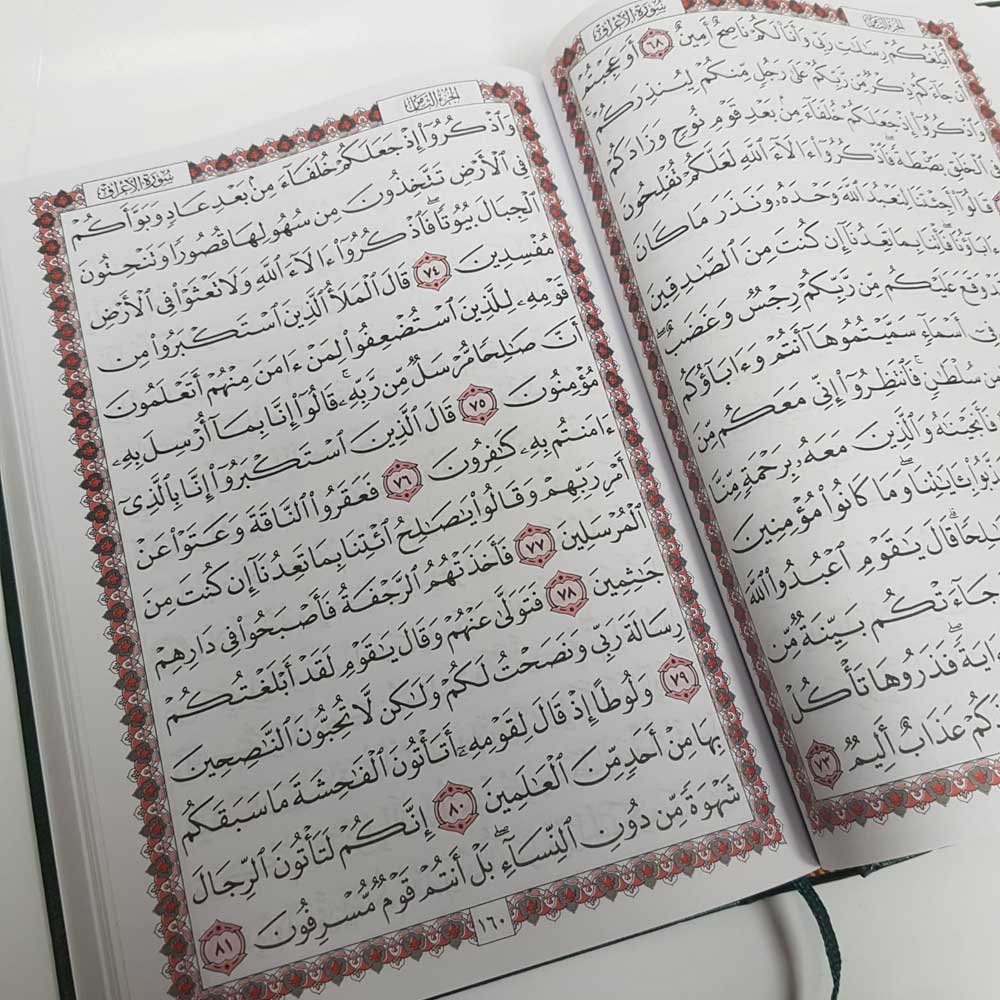 الجزء الثامن
سورة الأعراف
أُبَلِّغُكُمْ رِسَٰلَٰتِ رَبِّى وَأَنَا۠ لَكُمْ نَاصِحٌ أَمِينٌ ٦٨ أَوَعَجِبْتُمْ
أَن جَآءَكُمْ ذِكْرٌ مِّن رَّبِّكُمْ عَلَىٰ رَجُلٍ مِّنكُمْ لِيُنذِرَكُمْ
وَٱذْكُرُوٓا۟ إِذْ جَعَلَكُمْ خُلَفَآءَ مِنۢ بَعْدِ قَوْمِ نُوحٍ وَزَادَكُمْ
فِى ٱلْخَلْقِ بَصْۜطَةً فَٱذْكُرُوٓا۟ ءَالَآءَ ٱللَّهِ لَعَلَّكُمْ تُفْلِحُونَ
قَالُوٓا۟ أَجِئْتَنَا لِنَعْبُدَ ٱللَّهَ وَحْدَهُۥ وَنَذَرَ مَا كَانَ
ءَابَآؤُنَا فَأْتِنَا بِمَا تَعِدُنَآ إِن كُنتَ مِنَ ٱلصَّٰدِقِينَ
قَدْ وَقَعَ عَلَيْكُم مِّن رَّبِّكُمْ رِجْسٌ وَغَضَبٌ
فِىٓ أَسْمَآءٍ سَمَّيْتُمُوهَآ أَنتُمْ وَءَابَآؤُكُم
مِن سُلْطَٰنٍ فَٱنتَظِرُوٓا۟ إِنِّى مَعَكُم مِّنَ
فَأَنجَيْنَٰهُ وَٱلَّذِينَ مَعَهُۥ بِرَحْمَةٍ مِّنَّا
بِـَٔايَٰتِنَا وَمَا كَانُوا۟ مُؤْمِنِينَ
قَالَ يَٰقَوْمِ ٱعْبُدُوا۟ ٱللَّهَ
جَآءَتْكُم بَيِّنَةٌ مِّن
ءَايَةً فَذَرُوهَا تَأْكُلْ
عَذَابٌ أَلِيمٌ ٧٣
الجزء الثامن
سورة الأعراف
وَٱذْكُرُوٓا۟ إِذْ جَعَلَكُمْ خُلَفَآءَ مِنۢ بَعْدِ عَادٍ وَبَوَّأَكُمْ
فِى ٱلْأَرْضِ تَتَّخِذُونَ مِن سُهُولِهَا قُصُورًا وَتَنْحِتُونَ
ٱلْجِبَالَ بُيُوتًا فَٱذْكُرُوٓا۟ ءَالَآءَ ٱللَّهِ وَلَا تَعْثَوْا۟ فِى ٱلْأَرْضِ
مُفْسِدِينَ ٧٤ قَالَ ٱلْمَلَأُ ٱلَّذِينَ ٱسْتَكْبَرُوا۟ مِن
قَوْمِهِۦ لِلَّذِينَ ٱسْتُضْعِفُوا۟ لِمَنْ ءَامَنَ مِنْهُمْ أَتَعْلَمُونَ
أَنَّ صَٰلِحًا مُّرْسَلٌ مِّن رَّبِّهِۦ قَالُوٓا۟ إِنَّا بِمَآ أُرْسِلَ بِهِۦ
مُؤْمِنُونَ ٧٥ قَالَ ٱلَّذِينَ ٱسْتَكْبَرُوٓا۟ إِنَّا بِٱلَّذِىٓ
ءَامَنتُم بِهِۦ كَٰفِرُونَ ٧٦ فَعَقَرُوا۟ ٱلنَّاقَةَ وَعَتَوْا۟ عَنْ
أَمْرِ رَبِّهِمْ وَقَالُوا۟ يَٰصَٰلِحُ ٱئْتِنَا بِمَا تَعِدُنَآ إِن كُنتَ مِنَ
ٱلْمُرْسَلِينَ ٧٧ فَأَخَذَتْهُمُ ٱلرَّجْفَةُ فَأَصْبَحُوا۟ فِى دَارِهِمْ
جَٰثِمِينَ ٧٨ فَتَوَلَّىٰ عَنْهُمْ وَقَالَ يَٰقَوْمِ لَقَدْ أَبْلَغْتُكُمْ
رِسَالَةَ رَبِّى وَنَصَحْتُ لَكُمْ وَلَٰكِن لَّا تُحِبُّونَ ٱلنَّٰصِحِينَ
٧٩ وَلُوطًا إِذْ قَالَ لِقَوْمِهِۦٓ أَتَأْتُونَ ٱلْفَٰحِشَةَ مَا سَبَقَكُم
بِهَا مِنْ أَحَدٍ مِّنَ ٱلْعَٰلَمِينَ ٨٠ إِنَّكُمْ لَتَأْتُونَ ٱلرِّجَالَ
شَهْوَةً مِّن دُونِ ٱلنِّسَآءِ بَلْ أَنتُمْ قَوْمٌ مُّسْرِفُونَ ٨١
١٦٠